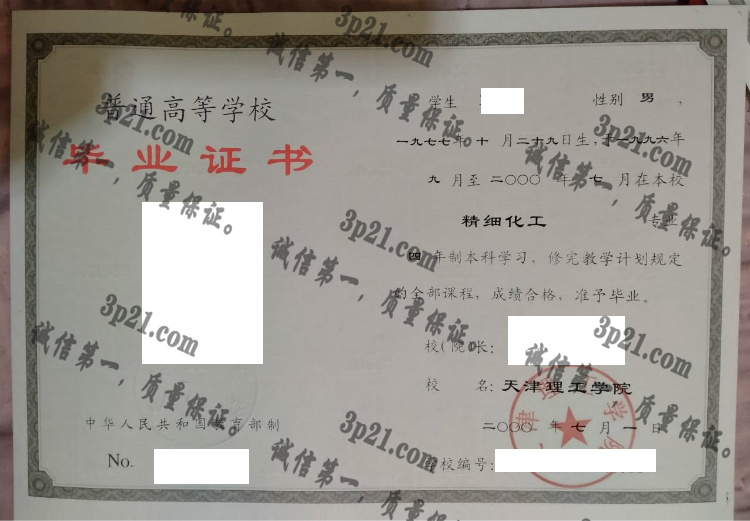 普通高等学校
毕业证书
中华人民共和国教育部制
No.
学生 性别 男 、
一九七七年十 月二十九日生，于一九九六年
九 月至 二〇〇〇 年 七 月在本校
精细化工 专业
四 年制本科学习，修完教学计划规定
的全部课程，成绩合格，准予毕业。
校(院)长：
校 名：天津理工学院
二〇〇〇 年 七 月 一 日
学校编号：
3p21.com
诚信第一，质量保证。
3p21.com
诚信第一，质量保证。
3p21.com
诚信第一，质量保证。
3p21.com
诚信第一，质量保证。
3p21.com
诚信第一，质量保证。
3p21.com
诚信第一，质量保证。
3p21.com
诚信第一，质量保证。